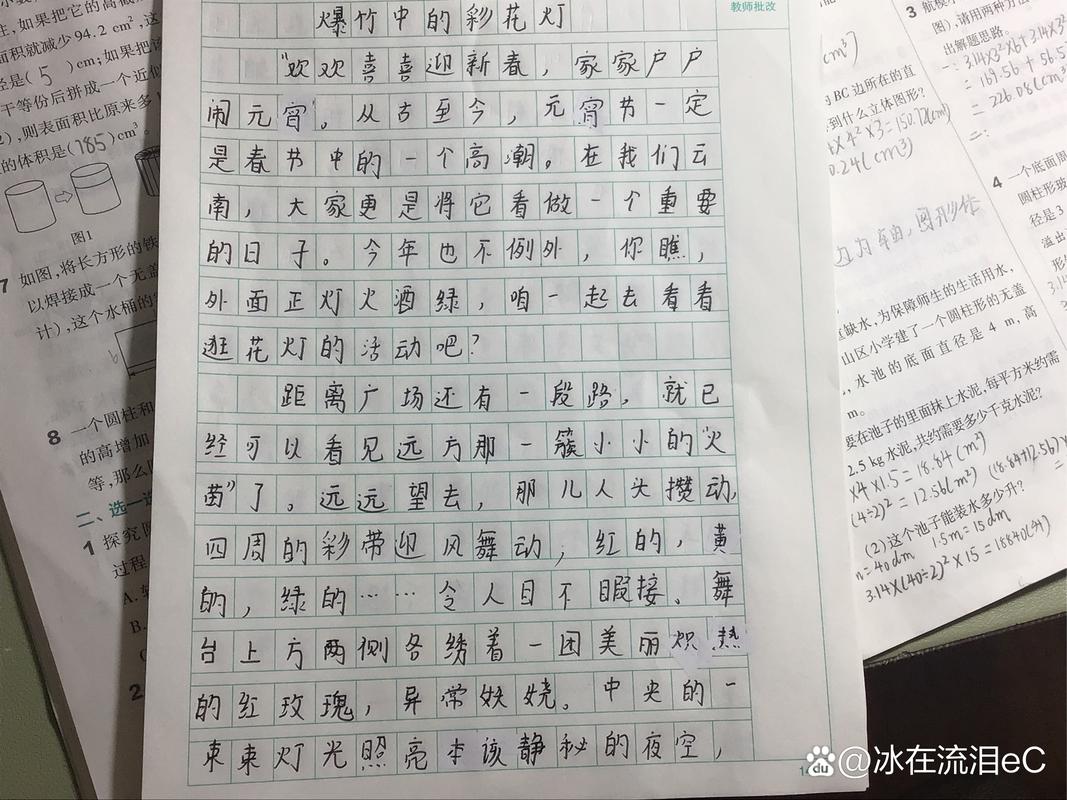 爆竹中的彩花灯
教师批改
“欢欢喜喜迎新春，家家户户
闹元宵”。从古至今，元宵节一定
是春节中的一个高潮。在我们云
南，大家更是将它看做一个重要
的日子。今年也不例外，你瞧，
外面正灯火酒绿，咱一起去看看
逛花灯的活动吧？
距离广场还有一段路，就已
经可以看见远方那一簇小小的“火
苗”了。远远望去，那儿人头攒动，
四周的彩带迎风舞动，红的，黄
的，绿的……令人目不暇接。舞
台上方两侧各绣着一团美丽炽热
的红玫瑰，异常妖娆。中央的一
束束灯光照亮本该静秘的夜空，
住,如果把它的高减
面积就减少94.2 cm²,这
径是(5)cm;如果把
干等份后拼成一个近似
,则表面积比原来多
的体积是(785)cm³。
图1
7 如图,将长方形的铁
以焊接成一个无盖
计),这个水桶的
8 一个圆柱和
的高增加
等,那么
二、选一选
1 探究
过程
A.
B.
2
BC边所在的直
到什么立体图形?
×4²×3=150.72(cm³)
0.24(cm³)
缺水,为保障师生的生活用水,
山区小学建了一个圆柱形的无盖
水池的底面直径是 4 m,高
m。
要在池子的里面抹上水泥,每平方米约需
2.5 kg水泥,共约需要多少千克水泥?
×4×1.5=18.84(m²)
(4÷2)²=12.56(m²)
(18.84+12.56)×
(2)这个池子能装水多少升?
=40dm 1.5m=15dm
3.14×(40÷2)²×15=18840(升)
3 航模
图),请用两种方法
出解题思路。
一:3.14×3²×6+3.14×3²
=169.56+56.5
=226.08(cm³
二:
4 一个底面周
圆柱形玻
径是3
溢出
@冰在流泪eC